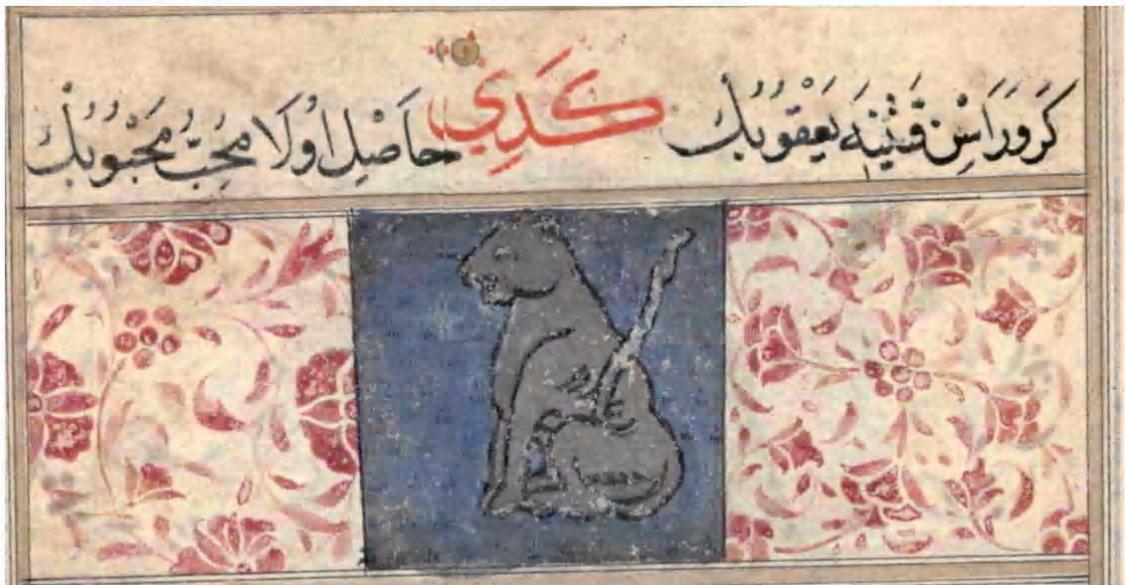 كَرُورَاسْن قَتِينَه يَعْقُوبُكْ كَدِي حَاصِل اوُلَا مُحِبُّ مَحْبُوبُكْ